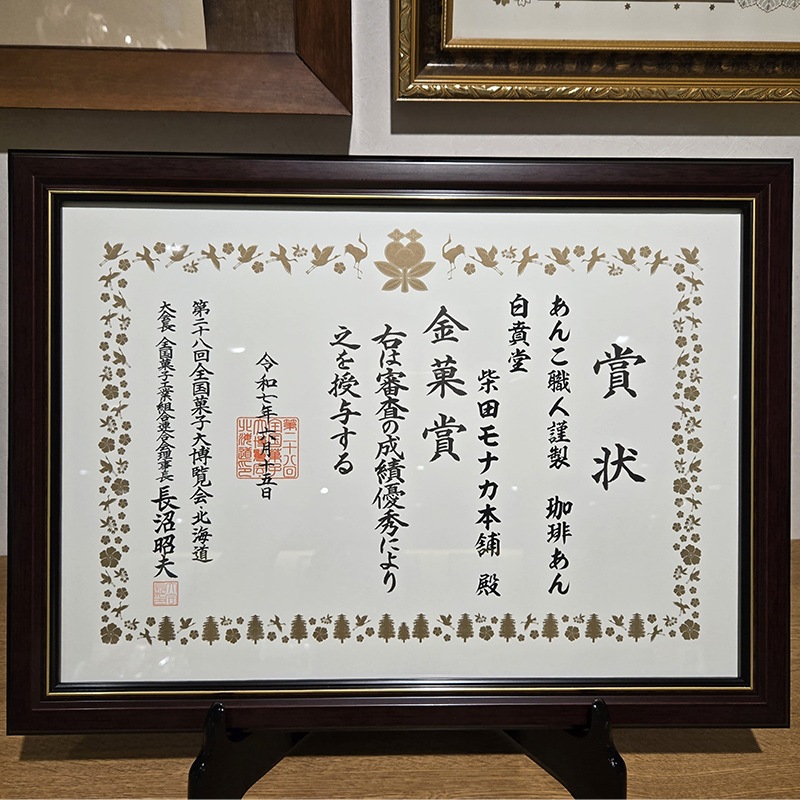 賞状
あんこ職人謹製　珈琲あん
白賁堂
柴田モナカ本舗　殿
金菓賞
右は審査の成績優秀により
之を授与する
令和七年六月十五日
第二十八回全国菓子大博覧会・北海道
大会長　全国菓子工業組合連合会理事長　長沼昭夫